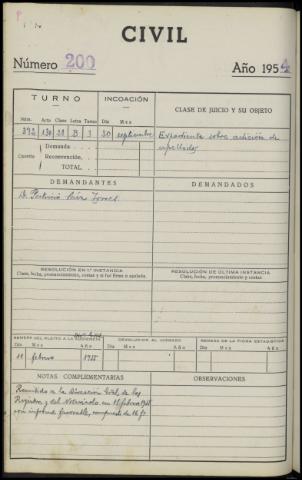 CIVIL
Número 200 Año 1954
TURNO INCOACIÓN CLASE DE JUICIO Y SU OBJETO
Núm. Acto Clase Letra Tarea Día Mes
292 130 28 B 3 30 septiembre Expediente sobre adición de
apellidos
Demanda
Cuantía Reconvención.
TOTAL.
DEMANDANTES DEMANDADOS
D. Patricio
RESOLUCIÓN EN 1.ª INSTANCIA RESOLUCIÓN DE ÚLTIMA INSTANCIA
Clase, fecha, pronunciamiento, costas y si fué firme o apelada. Clase, fecha, pronunciamiento y costas
REMESA DEL PLEITO A LA DEVOLUCIÓN AL JUZGADO REMESA DE LA FICHA ESTADÍSTICA
Día Mes Año Día Mes Año Día Mes Año
11 febrero 1955
NOTAS COMPLEMENTARIAS OBSERVACIONES
Remitido a la Dirección Gral. de los
Registros y del Notariado en 11 febrero 1955
con informe favorable, compuesto de 16 fs.